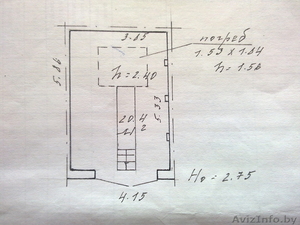 3.85
погреб
1.59 x 1.84
h = 1.56
h = 2.40
5.86
5.33
20.4
м2
Hо = 2.75
4.15
AvizInfo.by